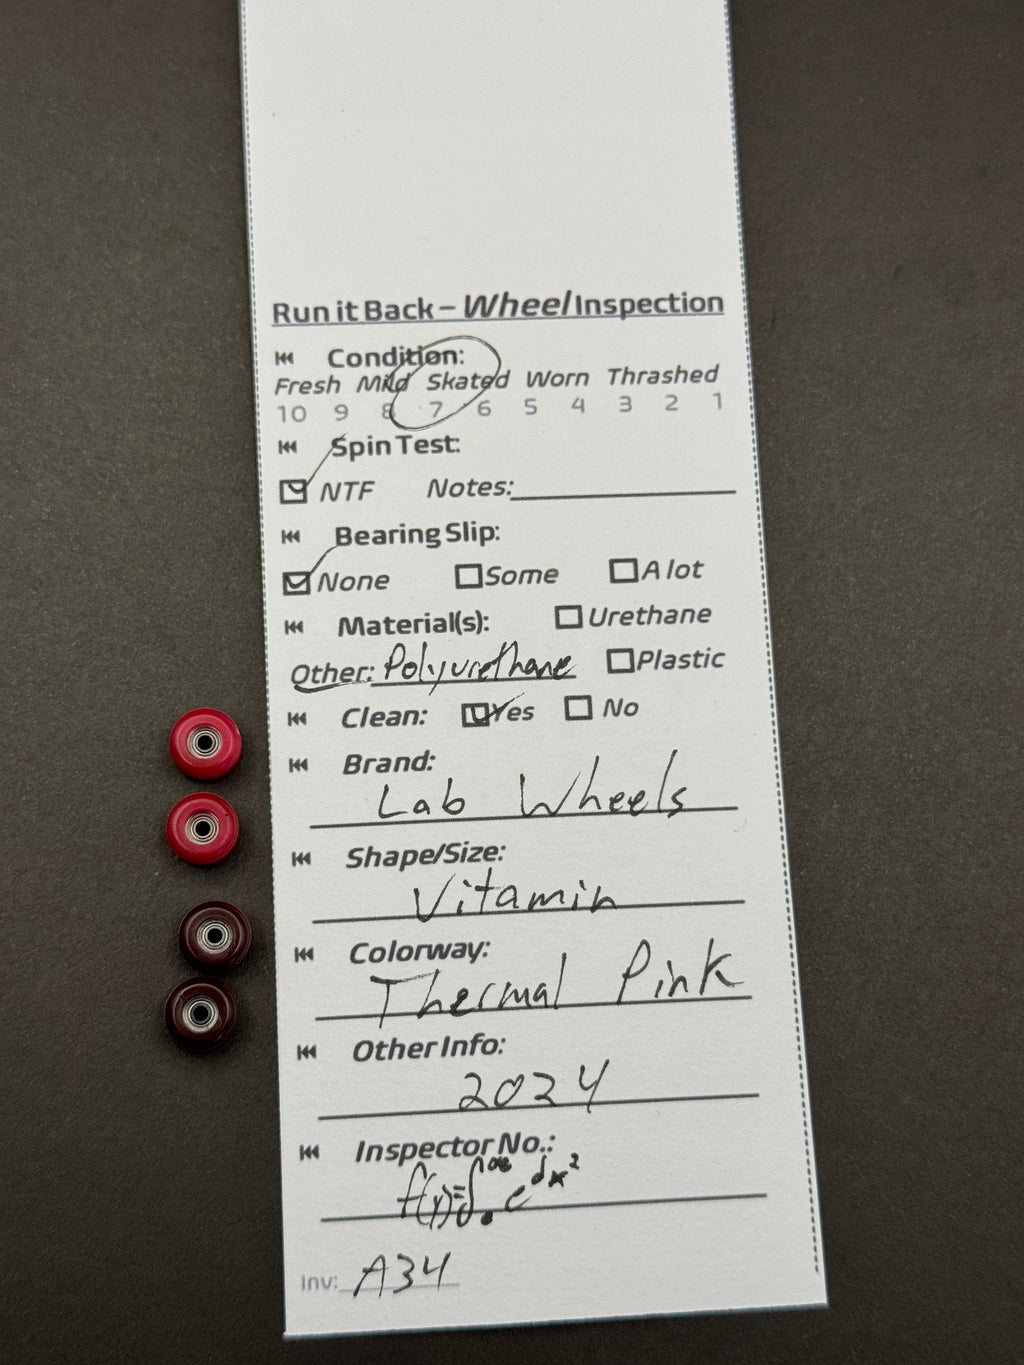 Run it Back – Wheel Inspection
Condition:
Fresh Mild Skated Worn Thrashed
10 9 8 7 6 5 4 3 2 1
Spin Test:
NTF Notes:
Bearing Slip:
None Some A lot
Material(s): Urethane
Other: Polyurethane Plastic
Clean: Yes No
Brand:
Lab Wheels
Shape/Size:
Vitamin
Colorway:
Thermal Pink
Other Info:
2024
Inspector No.:
Inv: A34